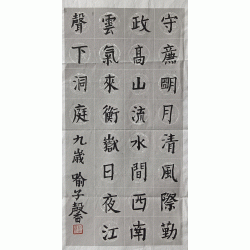 守廉明月清風際勤
政高山流水間西南
雲氣來衡嶽日夜江
聲下洞庭 九歲 喻子馨